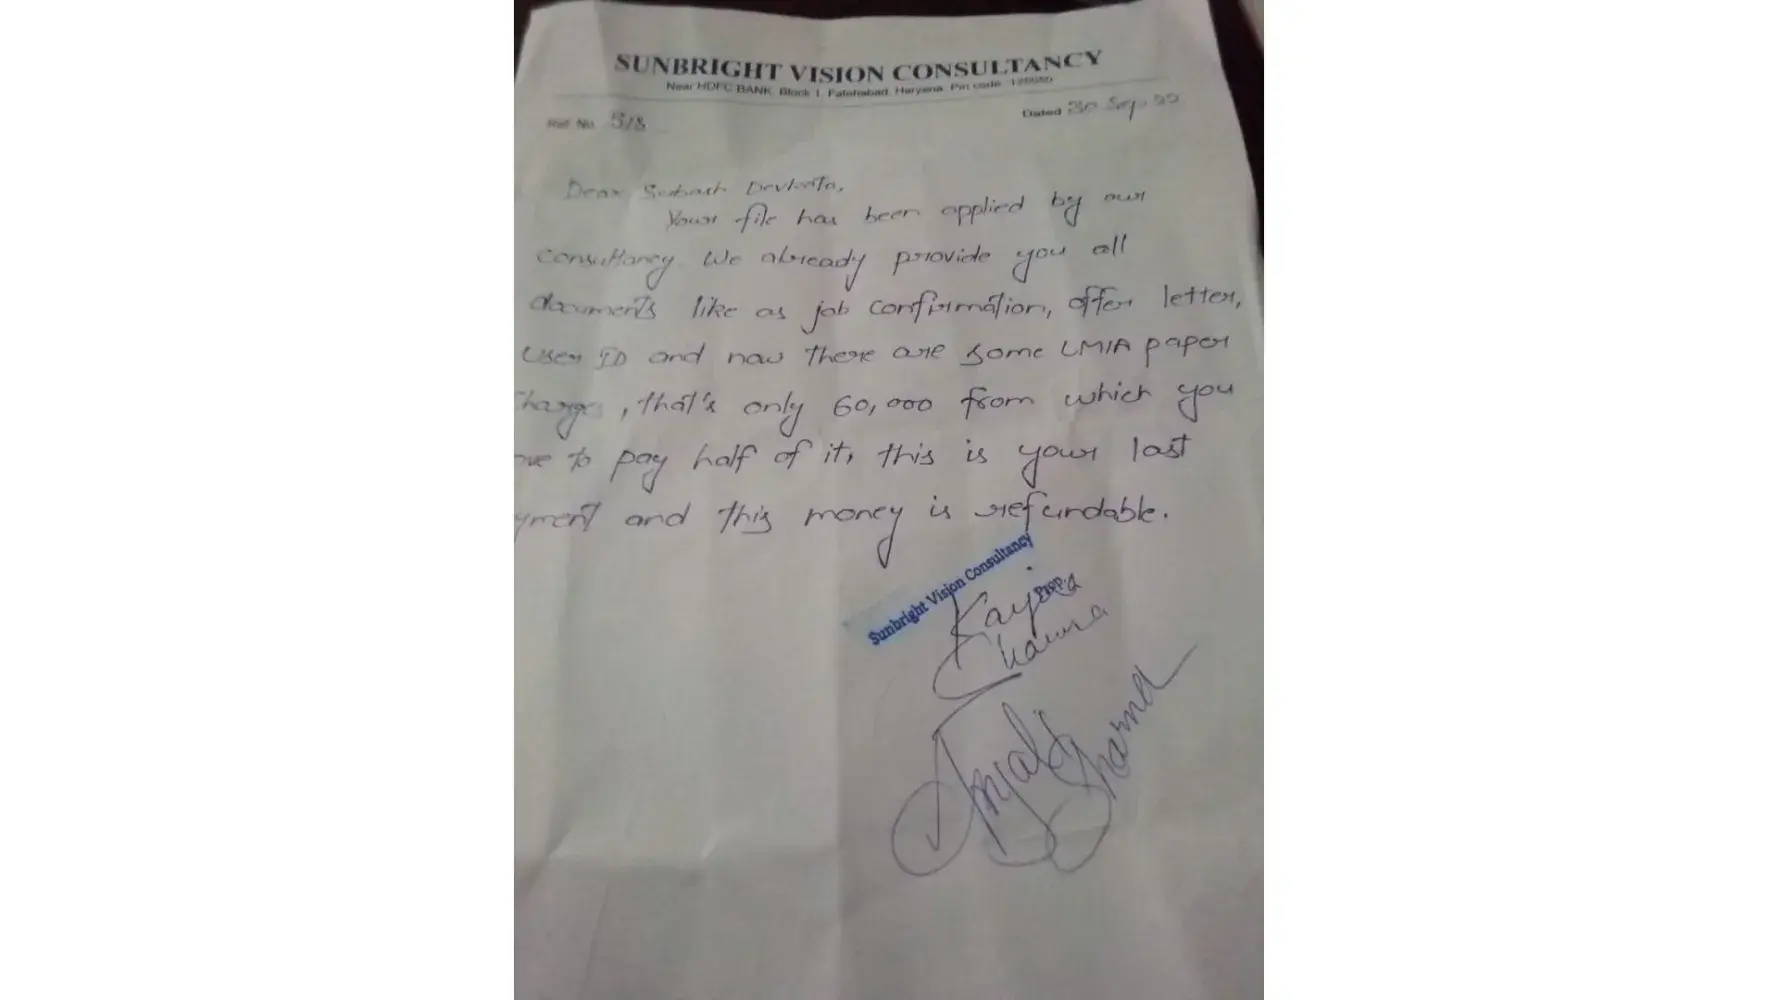 SUNBRIGHT VISION CONSULTANCY
Near HDFC BANK, Block 1, Fatehabad, Haryana, Pin code
Ref. No. 518 Dated 30 Sep. 22
Dear Subash Devkota,
Your file has been applied by our
consultancy. We already provide you all
documents like as job confirmation, offer letter,
User ID and now there are some LMIA paper
harges, that's only 60,000 from which you
ve to pay half of it, this is your last
yment and this money is refundable.
Sunbright Vision Consultancy
Prop.
Sharma
Anjali Sharma